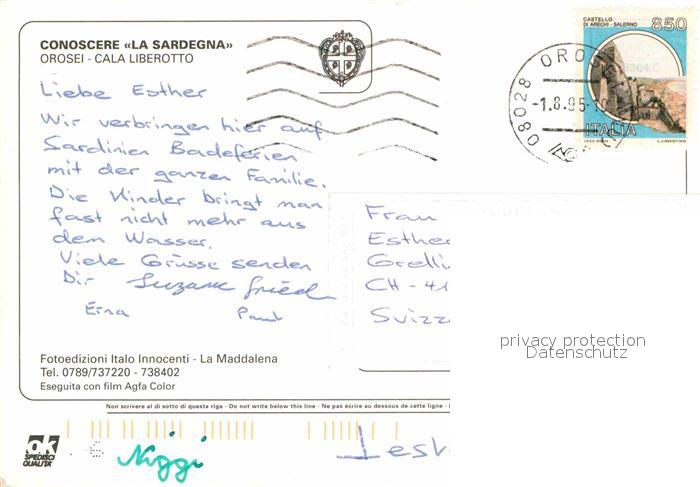 CONOSCERE «LA SARDEGNA»
OROSEI - CALA LIBEROTTO
Liebe Esther
Wir verbringen hier auf
Sardinien Badeferien
mit der ganzen Familie.
Die Kinder bringt man
fast nicht mehr aus
dem Wasser.
Viele Grüsse senden
Dir Suzanne Fried
Paul
Fotoedizioni Italo Innocenti - La Maddalena
Tel. 0789/737220 - 738402
Eseguita con film Agfa Color
CASTELLO
DI ARECHI - SALERNO
850
ITALIA
08028 OROSEI
-1.8.95-10
Frau
Esther
Grelli
CH - 41
Svizz
privacy protection
Datenschutz
Non scrivere al di sotto di questa riga - Do not write below this line - Ne pas écrire au dessous de cette ligne -
ok
SPEDISCI
QUALITA'
Niggi